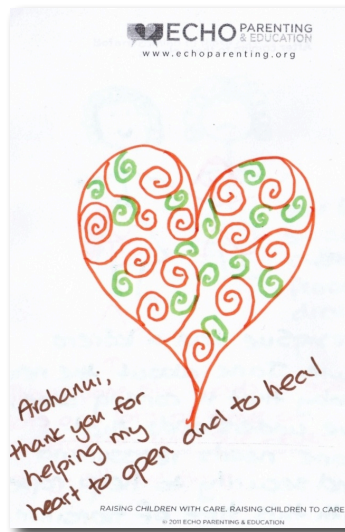 ECHO PARENTING & EDUCATION
www.echoparenting.org
Arohanui,
thank you for
helping my
heart to open and to heal
RAISING CHILDREN WITH CARE. RAISING CHILDREN TO CARE
© 2011 ECHO PARENTING & EDUCATION